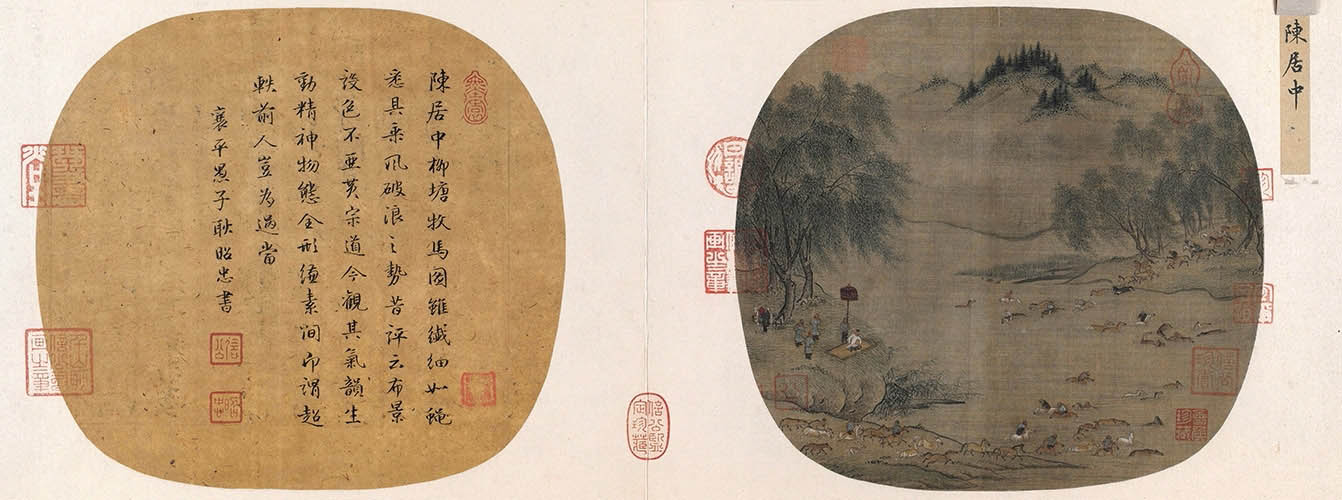 陳居中
陳居中柳塘牧馬圖雖纖細如蠅
悉具乘風破浪之勢昔評云布景
設色不亞黃宗道今觀其氣韻生
動精神物態全形縑素間所謂超
軼前人豈為過當
襄平愚子耿昭忠書
信公